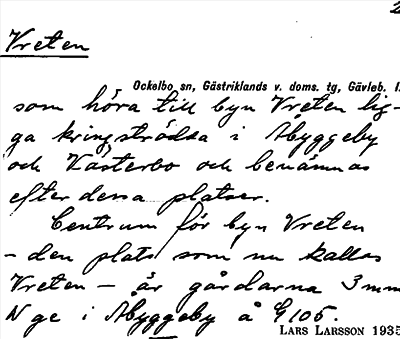 2
Vreten
Ockelbo sn, Gästriklands v. doms. tg, Gävleb. l.
som höra till byn Vreten lig-
ga kringströdda i Åbyggeby
och Västerbo och benämnas
efter dessa platser.
Centrum för byn Vreten
- den plats som nu kallas
Vreten - är gårdarna 3 mm
N ge i Åbyggeby å G 105.
LARS LARSSON 1935